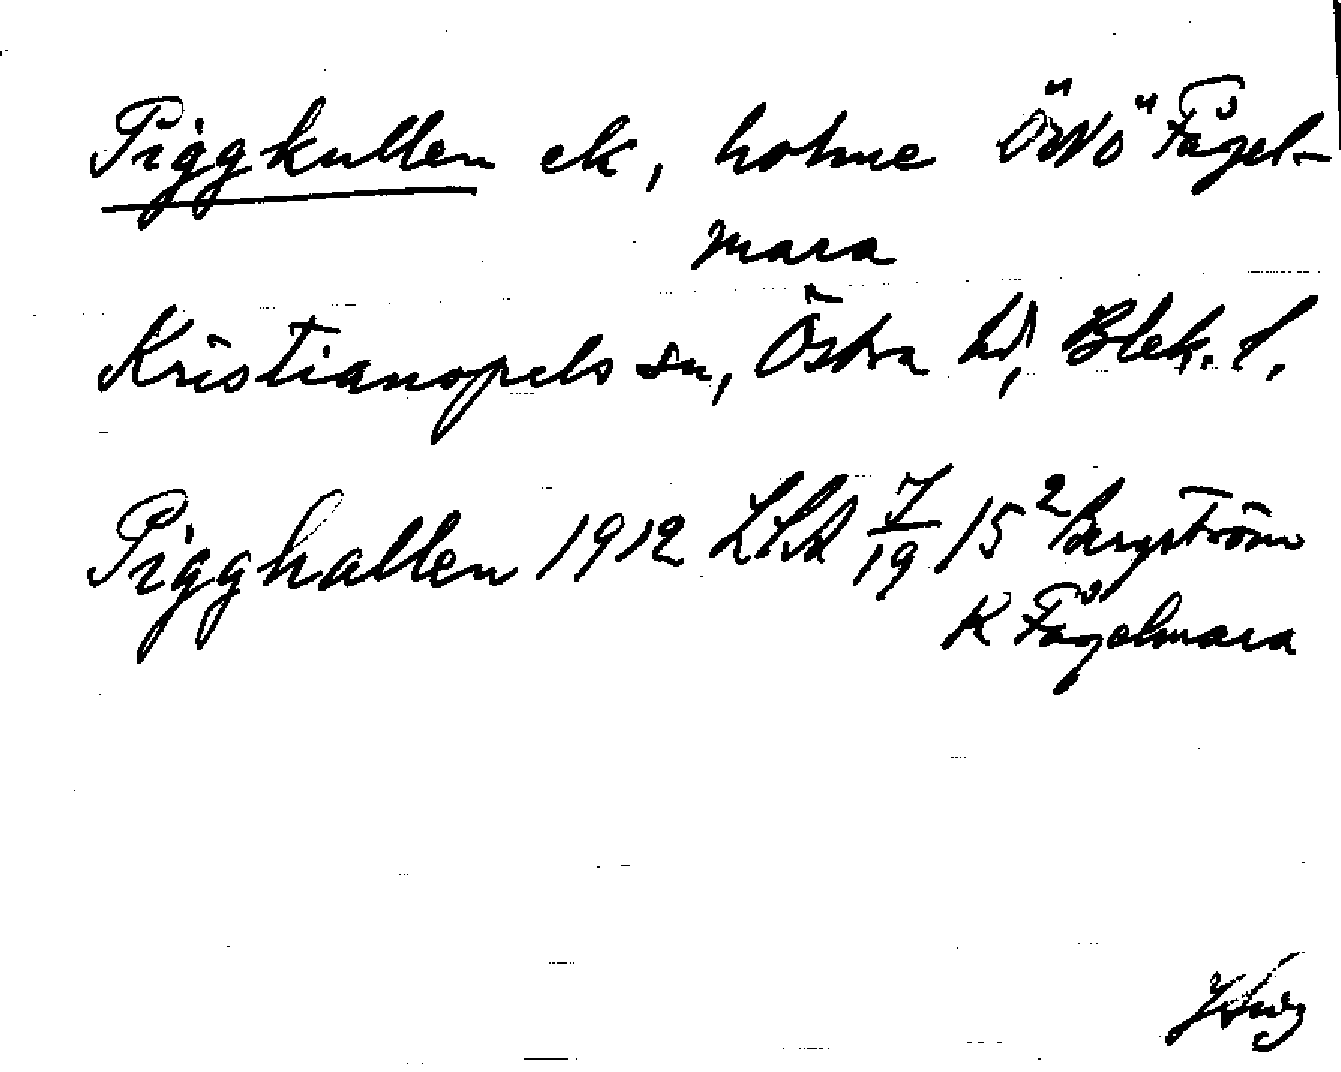 Piggkullen ek, holme ÖNÖ Fågel-
mara
Kristianopels sn, Östra hd, Blek. l.
Pigghallen 1912 LSA 7/19 /15² Bergström
K Fågelmara